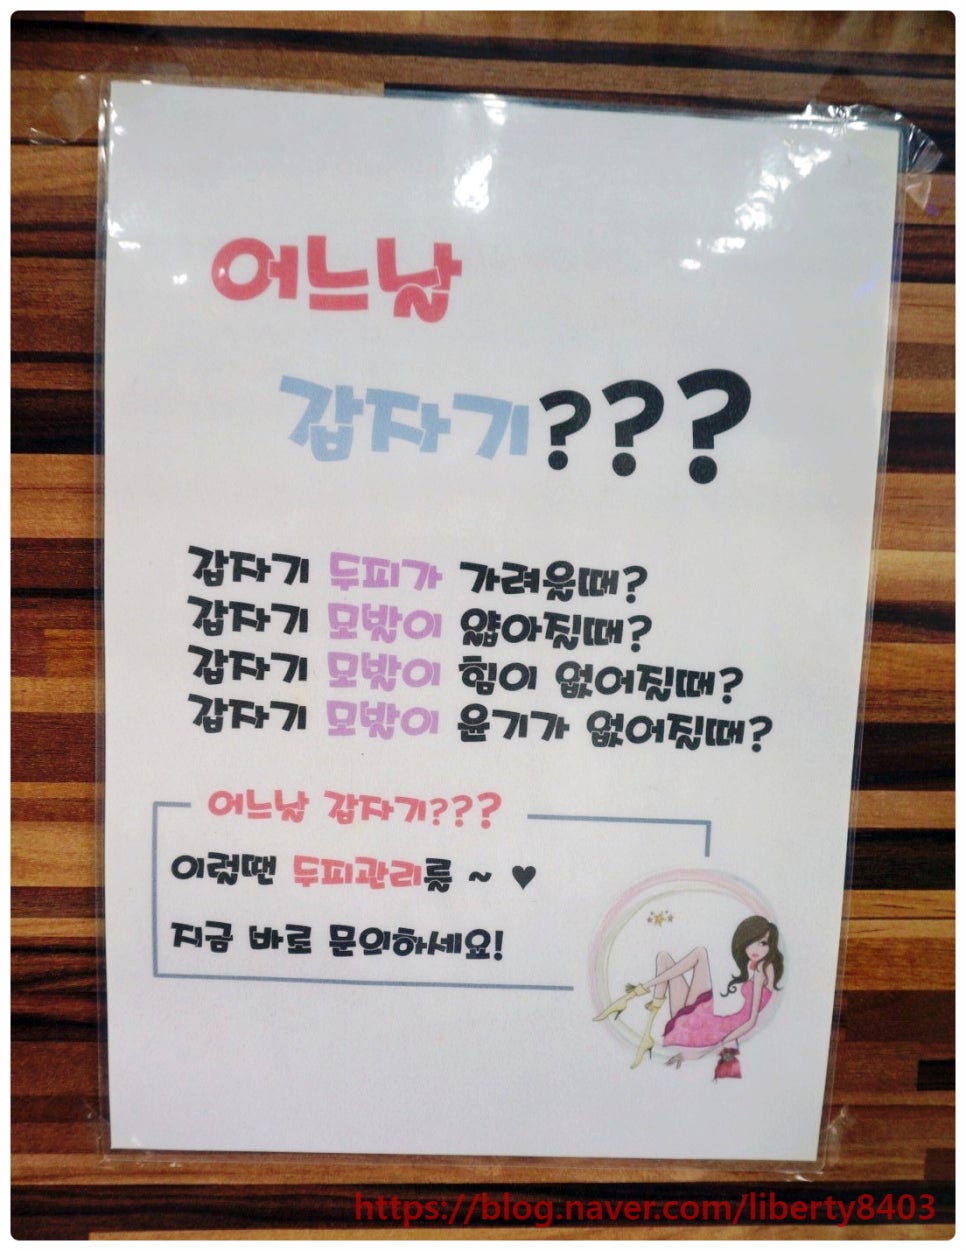 어느날
갑자기???
갑자기 두피가 가려울때?
갑자기 모발이 얇아질때?
갑자기 모발이 힘이 없어질때?
갑자기 모발이 윤기가 없어질때?
어느날 갑자기???
이럴땐 두피관리를 ~ ♥
지금 바로 문의하세요!
https://blog.naver.com/liberty8403